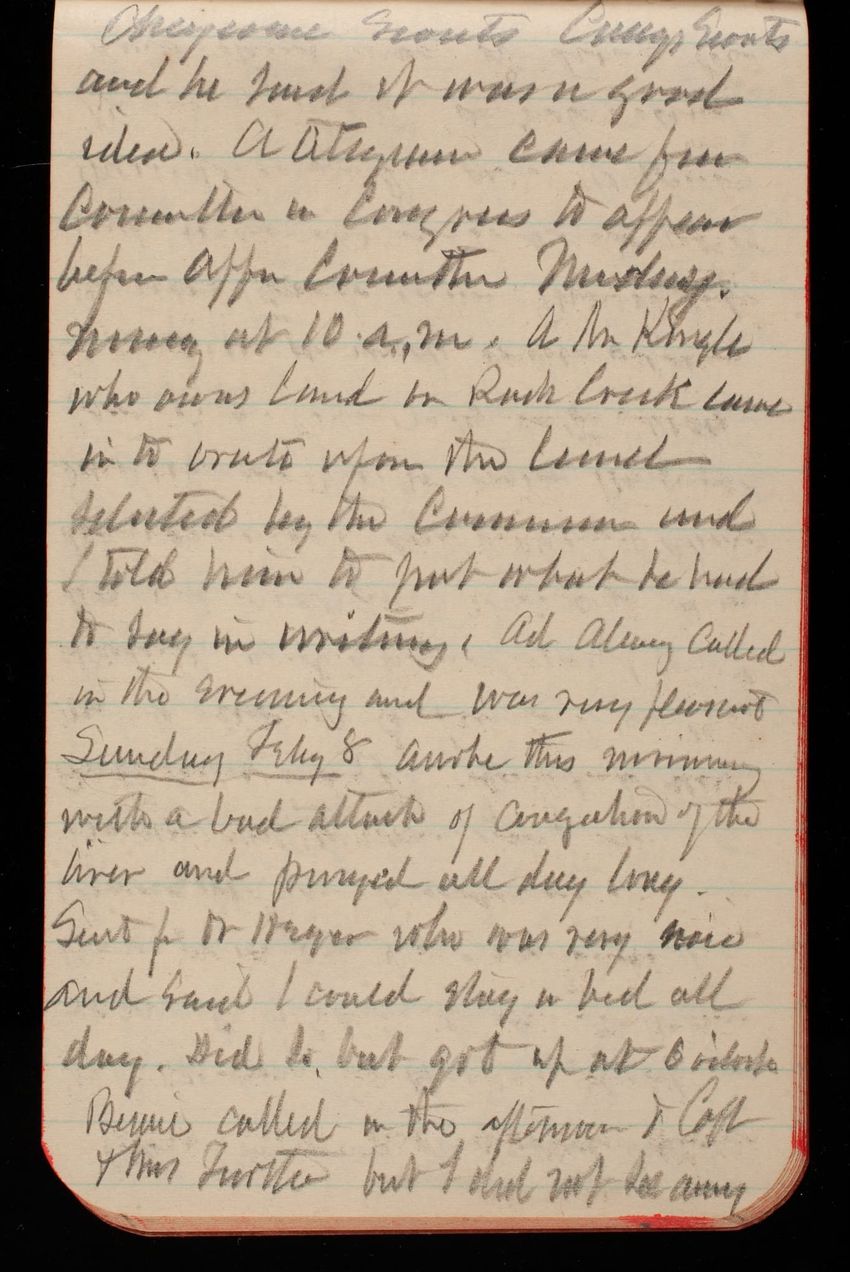 Cheyenne Scouts Scouts
and he said it was a good
idea. A telegram came from
Committee in Congress to appear
before Committee
morning at 10 a.m. A Mr Kingle
who owns land on Rock Creek came
in to upon the land
selected by the Commission and
I told him to put what he had
to say in writing. Ad called
in the evening and was very pleasant
Sunday Feby 8 awoke this morning
with a bad attack of congestion of the
liver and purged all day long.
Sent for Dr who was very nice
and said I could stay in bed all
day. Did so, but got up at 6 o'clock
Bennie called in the afternoon & Capt
& Mrs but I did not see any